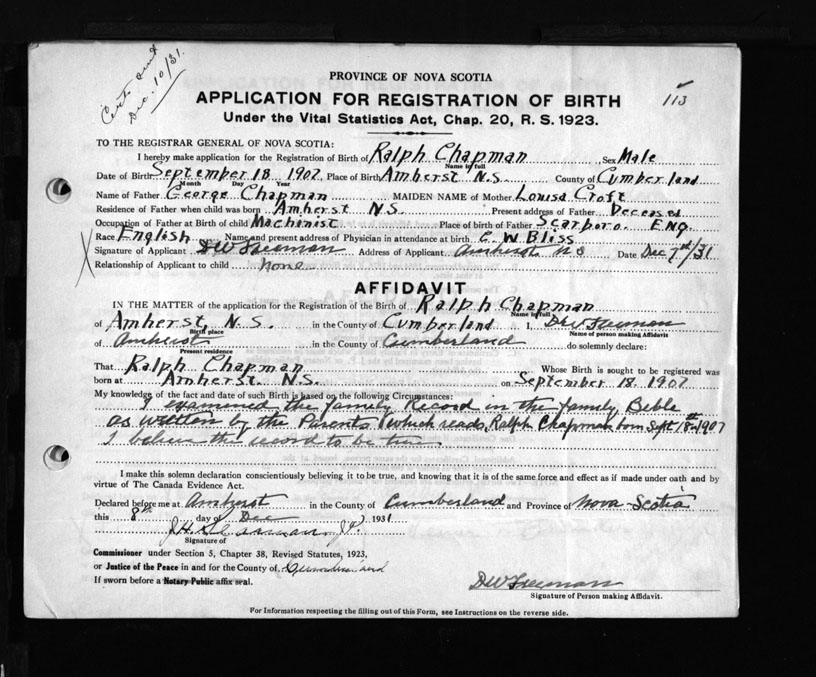 Cert. sent
Dec. 10/31.
PROVINCE OF NOVA SCOTIA
APPLICATION FOR REGISTRATION OF BIRTH
113
Under the Vital Statistics Act, Chap. 20, R. S. 1923.
TO THE REGISTRAR GENERAL OF NOVA SCOTIA:
I hereby make application for the Registration of Birth of Ralph Chapman Sex Male
Name in full
Date of Birth September 18 1907 Place of Birth Amherst N.S. County of Cumberland
Month Day Year
Name of Father George Chapman MAIDEN NAME of Mother Louisa Croft
Residence of Father when child was born Amherst N.S. Present address of Father Deceased
Occupation of Father at Birth of child Machinist Place of birth of Father Scarboro. ENG.
Race English Name and present address of Physician in attendance at birth C. W. Bliss
Signature of Applicant DW Freeman Address of Applicant Amherst NS Date Dec 7th/31
Relationship of Applicant to child none
AFFIDAVIT
IN THE MATTER of the application for the Registration of the Birth of Ralph Chapman
Name in full
of Amherst, N.S. in the County of Cumberland I, DW Freeman
Birth place Name of person making Affidavit
of Amherst in the County of Cumberland do solemnly declare:
Present residence
That Ralph Chapman Whose Birth is sought to be registered was
born at Amherst. N.S. on September 18. 1907
My knowledge of the fact and date of such Birth is based on the following Circumstances:
I examined the family Record in the family Bible
as written by the Parents which reads, Ralph Chapman born Sept 18th 1907
I believe the record to be true
I make this solemn declaration conscientiously believing it to be true, and knowing that it is of the same force and effect as if made under oath and by
virtue of The Canada Evidence Act.
Declared before me at Amherst in the County of Cumberland and Province of Nova Scotia
this 8th day of Dec 1931
J.P.
Signature of
Commissioner under Section 5, Chapter 38, Revised Statutes, 1923,
or Justice of the Peace in and for the County of Cumberland
If sworn before a Notary Public affix seal.
DW Freeman
Signature of Person making Affidavit.
For Information respecting the filling out of this Form, see Instructions on the reverse side.